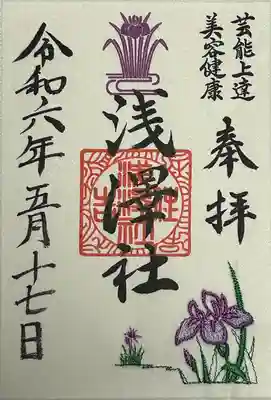 芸能上達
美容健康
奉拝
浅澤社
令和六年五月十七日